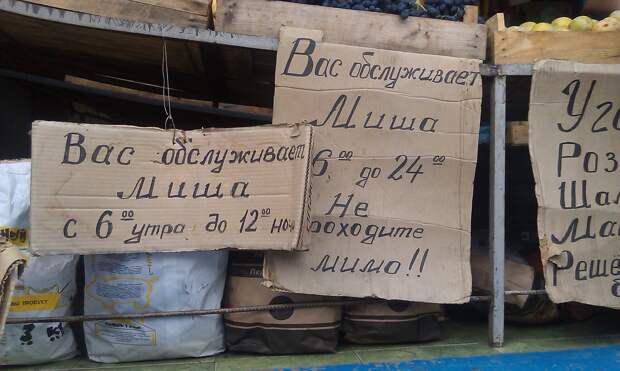 Вас обслуживает
Миша
с 6⁰⁰ утра до 12⁰⁰ но
Вас обслуживает
Миша
6⁰⁰ до 24⁰⁰
Не
роходите
мимо!!
Уго
Роз
Шаш
Ма
Реше
PRODUCT